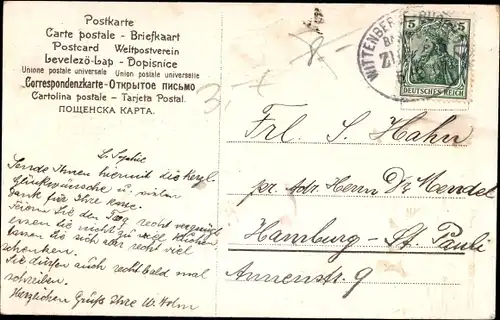 Postkarte
Carte postale - Briefkaart
Postcard Weltpostverein
Levelező-Lap - Dopisnice
Unione postale universale Union postale universelle
Correspondenzkarte - Открытое письмо
Cartolina postale - Tarjeta Postal.
ПОЩЕНСКА КАРТА.
WITTENBERGE
5 5
DEUTSCHES REICH
3,- 8,-
Frl. S. Hahn
pr. Adr. Herrn Dr Mendel
Hamburg - St. Pauli
Annenstr. 9
L. Sophie
Sende Ihnen hiermit die herzl.
Glückwünsche u. vielen
Dank für Ihre Karte.
Feiern Sie den Tag recht vergnügt
Sie nicht zu viel Kuchen
Sie sich recht viel
schenken.
Sie dürfen auch recht bald mal
schreiben.
Herzlichen Gruß Ihre W. Holm